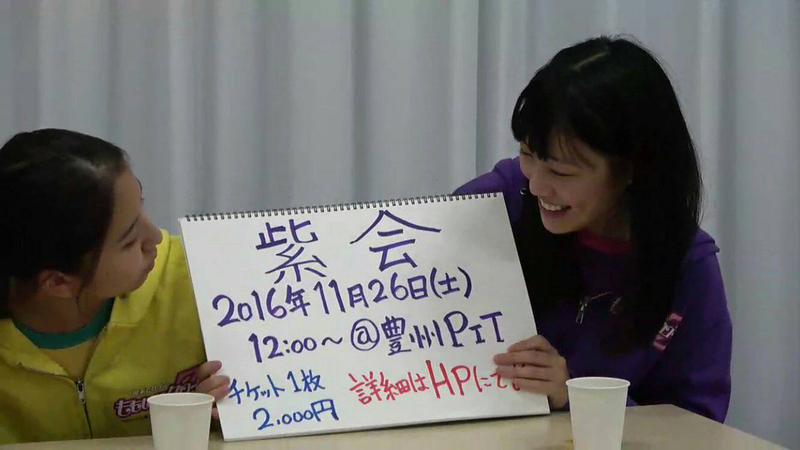 紫会
2016年11月26日(土)
12:00〜@豊州PIT
チケット1枚
2.000円
詳細はHPにて